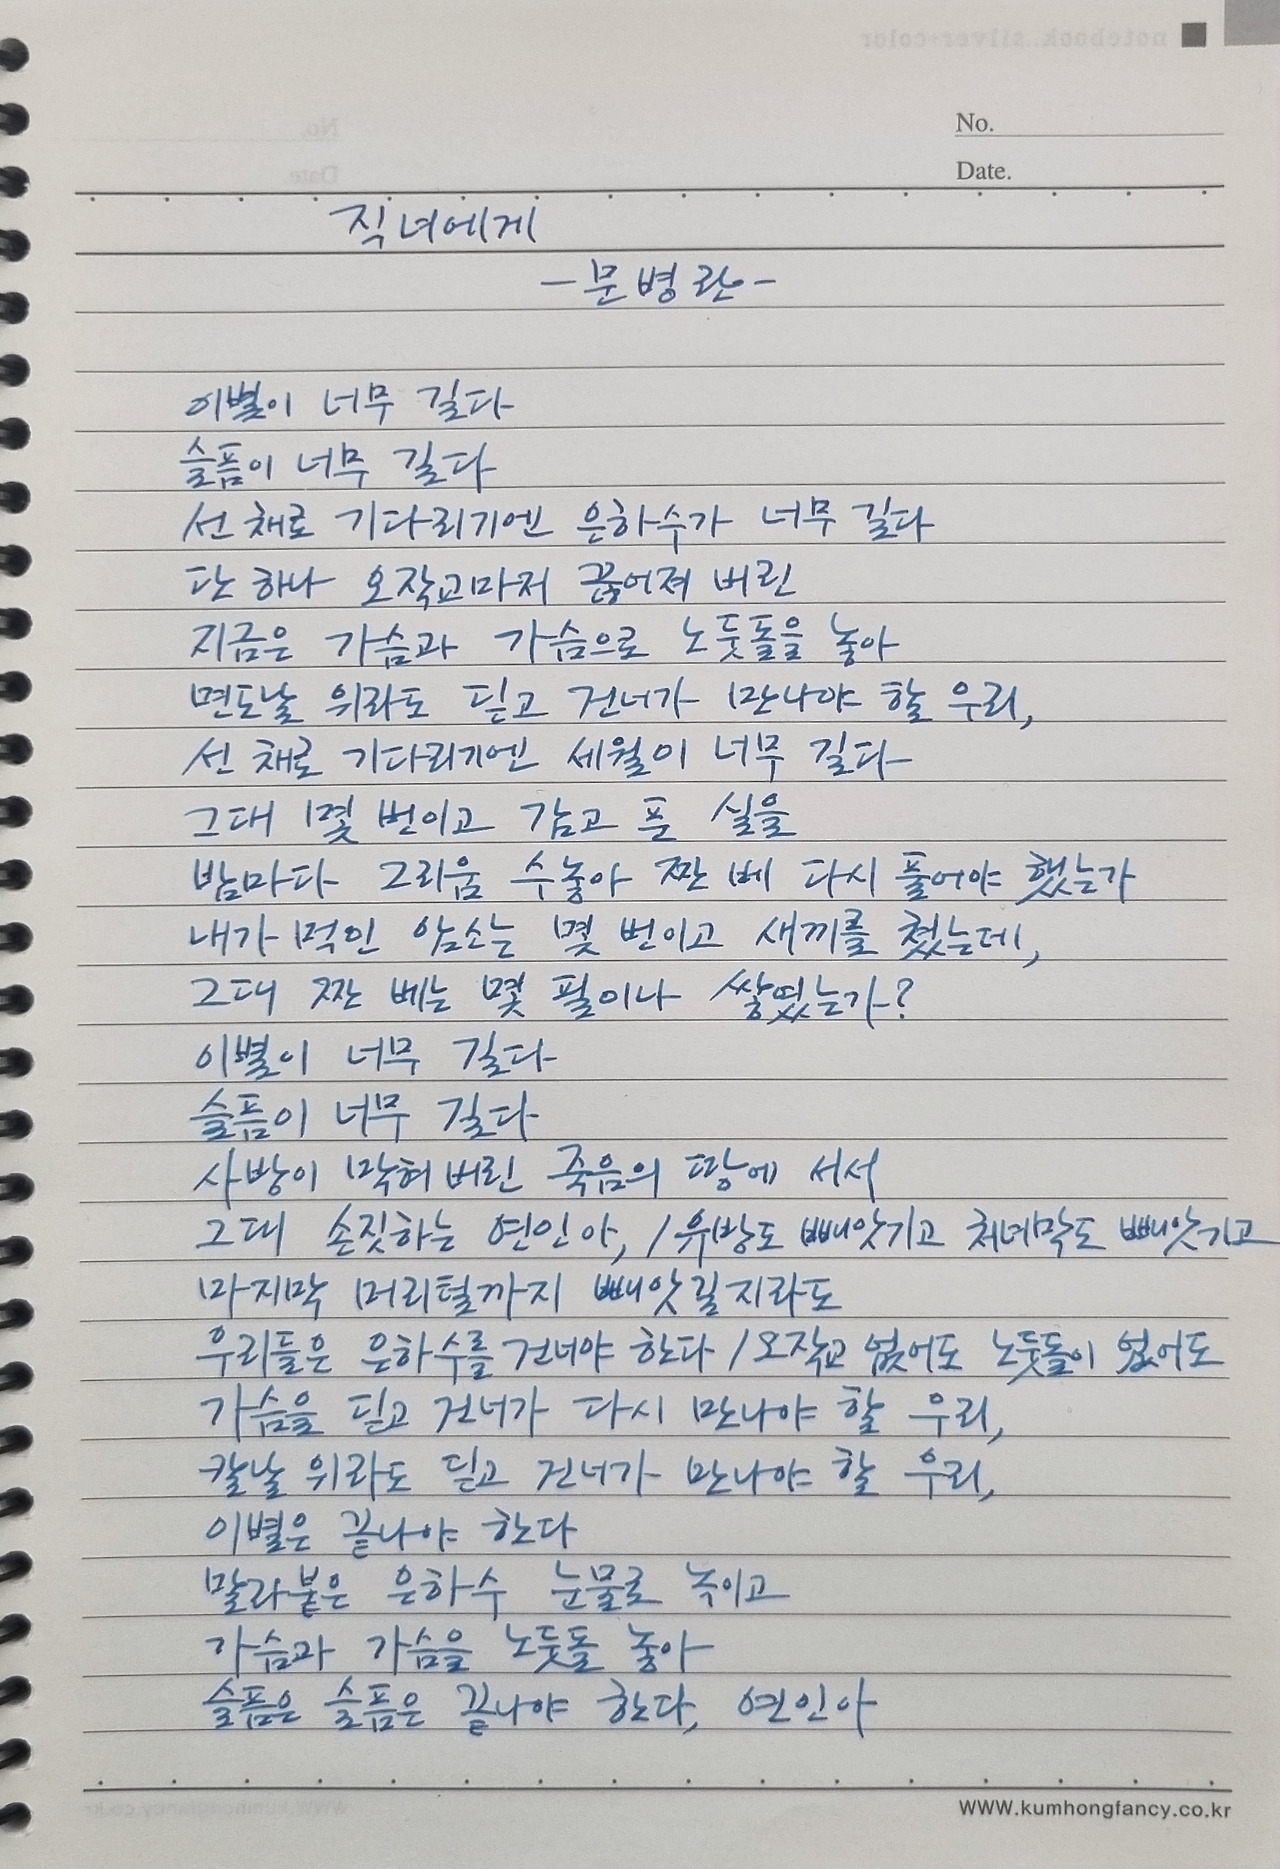 notebook.silver-color
No.
Date.
직녀에게
-문병란-
이별이 너무 길다
슬픔이 너무 길다
선 채로 기다리기엔 은하수가 너무 길다
단 하나 오작교마저 끊어져 버린
지금은 가슴과 가슴으로 노둣돌을 놓아
면도날 위라도 딛고 건너가 만나야 할 우리,
선 채로 기다리기엔 세월이 너무 길다
그대 몇 번이고 감고 푼 실을
밤마다 그리움 수놓아 짠 베 다시 풀어야 했는가
내가 먹인 암소는 몇 번이고 새끼를 쳤는데,
그대 짠 베는 몇 필이나 쌓였는가?
이별이 너무 길다
슬픔이 너무 길다
사방이 막혀 버린 죽음의 땅에 서서
그대 손짓하는 연인아, / 유방도 빼앗기고 처녀막도 빼앗기고
마지막 머리털까지 빼앗길지라도
우리들은 은하수를 건너야 한다 / 오작교 없어도 노둣돌이 없어도
가슴을 딛고 건너가 다시 만나야 할 우리,
칼날 위라도 딛고 건너가 만나야 할 우리,
이별은 끝나야 한다
말라붙은 은하수 눈물로 녹이고
가슴과 가슴을 노둣돌 놓아
슬픔은 슬픔은 끝나야 한다, 연인아
WWW.kumhongfancy.co.kr